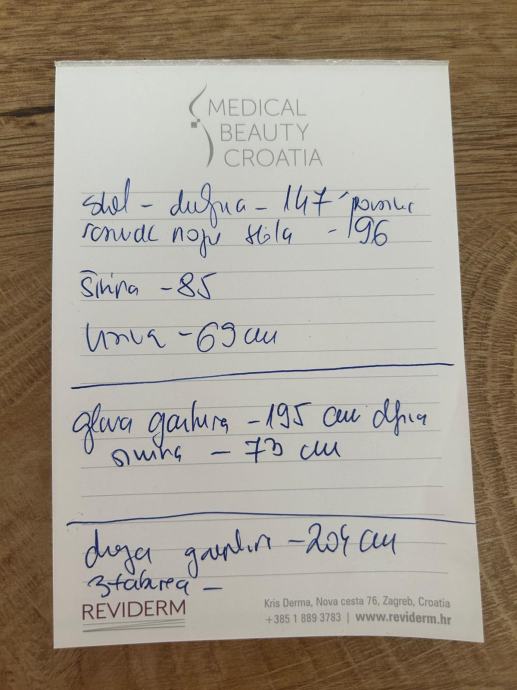 MEDICAL
BEAUTY
CROATIA
stol - dužina - 147
noge stola - 96
širina - 85
visina - 69 cm
garnitura - 195 cm
širina - 73 cm
druga - 204 cm
REVIDERM
Kris Derma, Nova cesta 76, Zagreb, Croatia
+385 1 889 3783 | www.reviderm.hr